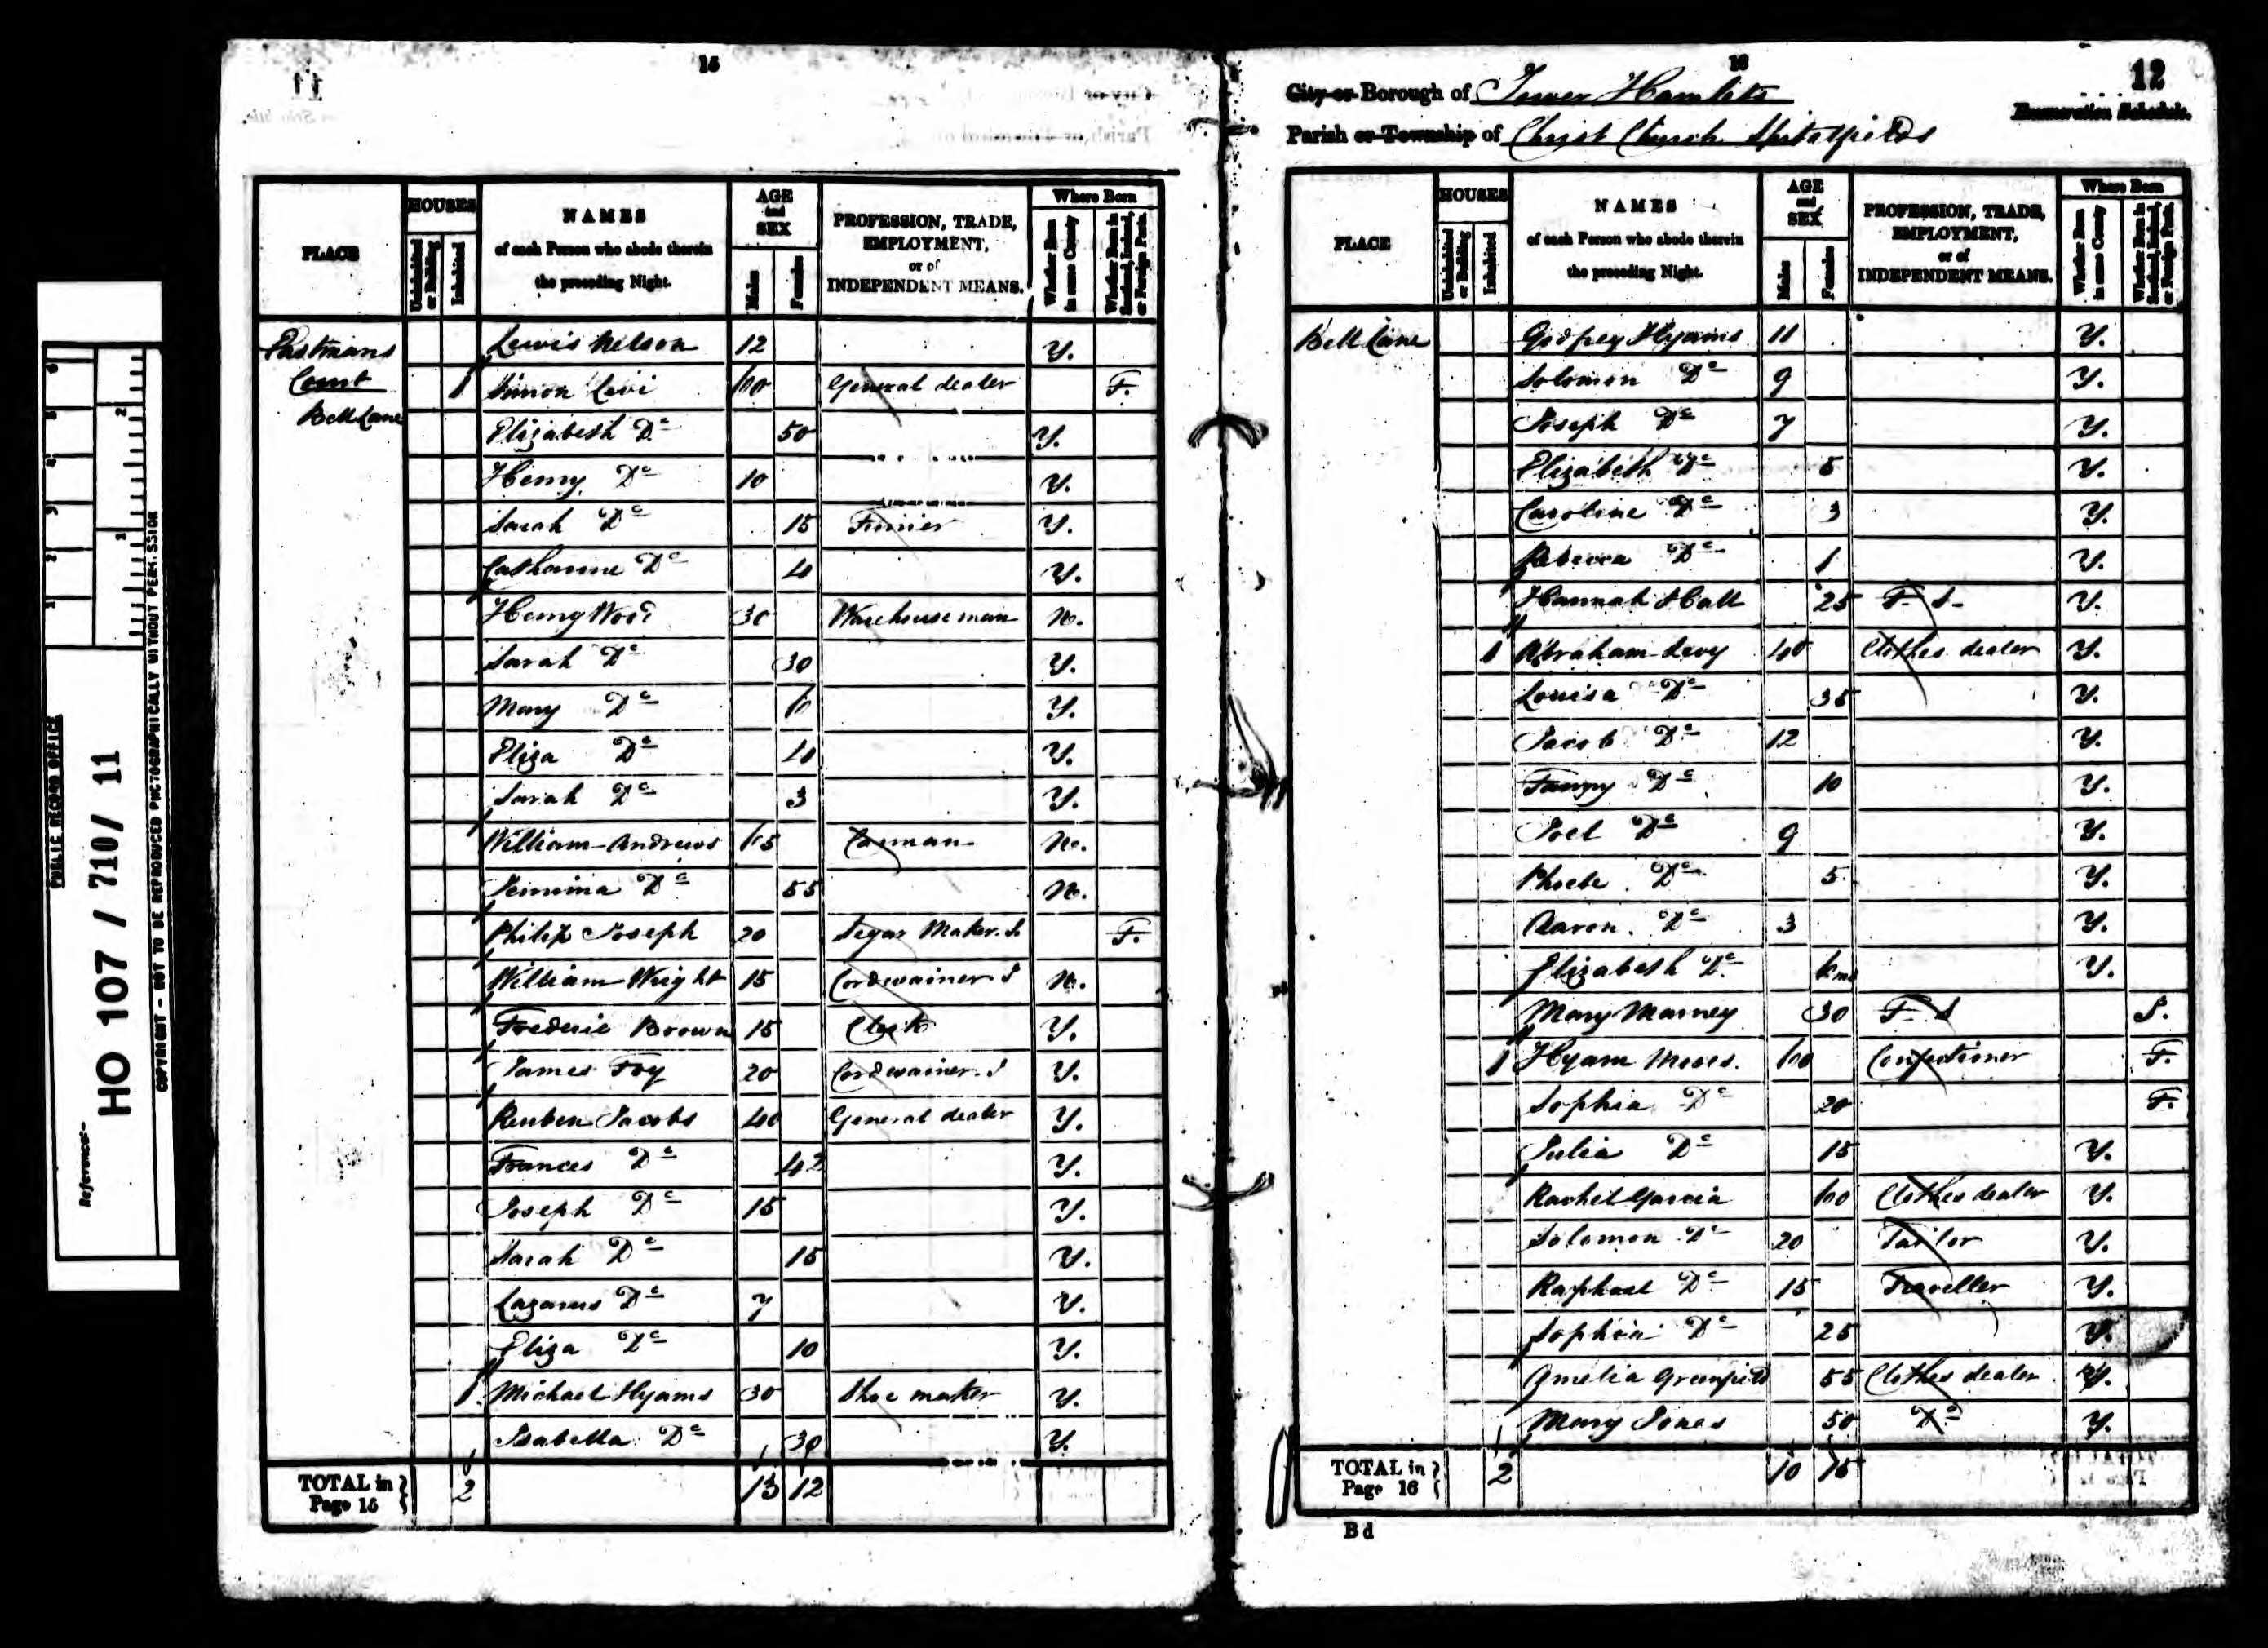 PUBLIC RECORD OFFICE
Reference:-
HO 107 / 710/ 11
COPYRIGHT - NOT TO BE REPRODUCED PHOTOGRAPHICALLY WITHOUT PERMISSION
15
PLACE
HOUSES
Uninhabited or Building
Inhabited
NAMES
of each Person who abode therein
the preceding Night.
AGE and SEX
Males
Females
PROFESSION, TRADE,
EMPLOYMENT,
or of
INDEPENDENT MEANS.
Where Born
Whether Born in same County
Whether Born in Scotland, Ireland, or Foreign Parts.
Lewis Nelson 12 Y.
Court 1 Simon Levi 60 General dealer F.
Bell Lane
Elizabeth Do 50 Y.
Henry Do 10 Y.
Sarah Do 15 Furrier Y.
Catharine Do 4 Y.
Henry Wood 30 Warehouseman N.
Sarah Do 30 Y.
Mary Do 6 Y.
Eliza Do 4 Y.
Sarah Do 3 Y.
William Andrews 65 Carman N.
Jemima Do 55 N.
Philip Joseph 20 Segar Maker J. F.
William Wright 15 Cordwainer J N.
Frederic Brown 15 Clerk Y.
James Foy 20 Cordwainer J Y.
Reuben Jacobs 40 General dealer Y.
Frances Do 42 Y.
Joseph Do 15 Y.
Sarah Do 15 Y.
Lazarus Do 7 Y.
Eliza Do 10 Y.
1 Michael Hyams 30 Shoe maker Y.
Isabella Do 30 Y.
TOTAL in Page 15 2 13 12
16
12
City or Borough of Tower Hamlets
Enumeration Schedule.
Parish or Township of Christ Church Spitalfields
PLACE
HOUSES
Uninhabited or Building
Inhabited
NAMES
of each Person who abode therein
the preceding Night.
AGE and SEX
Males
Females
PROFESSION, TRADE,
EMPLOYMENT,
or of
INDEPENDENT MEANS.
Where Born
Whether Born in same County
Whether Born in Scotland, Ireland, or Foreign Parts.
Bell Lane Godfrey Hyams 11 Y.
Solomon Do 9 Y.
Joseph Do 7 Y.
Elizabeth Do 5 Y.
Caroline Do 3 Y.
Rebecca Do 1 Y.
Hannah Hall 25 F. S. Y.
1 Abraham Levy 40 Clothes dealer Y.
Louisa Do 35 Y.
Jacob Do 12 Y.
Fanny Do 10 Y.
Joel Do 9 Y.
Phoebe Do 5 Y.
Aaron Do 3 Y.
Elizabeth Do 6 ms Y.
Mary Marney 30 F. S
1 Hyam Moses. 60 Confectioner F.
Sophia Do 20 F.
Julia Do 15 Y.
Rachel Garcia 60 Clothes dealer Y.
Solomon Do 20 Tailor Y.
Raphael Do 15 Traveller Y.
Sophia Do 25 Y.
Amelia Greenfield 55 Clothes dealer Y.
Mary Jones 50 Do Y.
TOTAL in Page 16 2 10 15
Bd